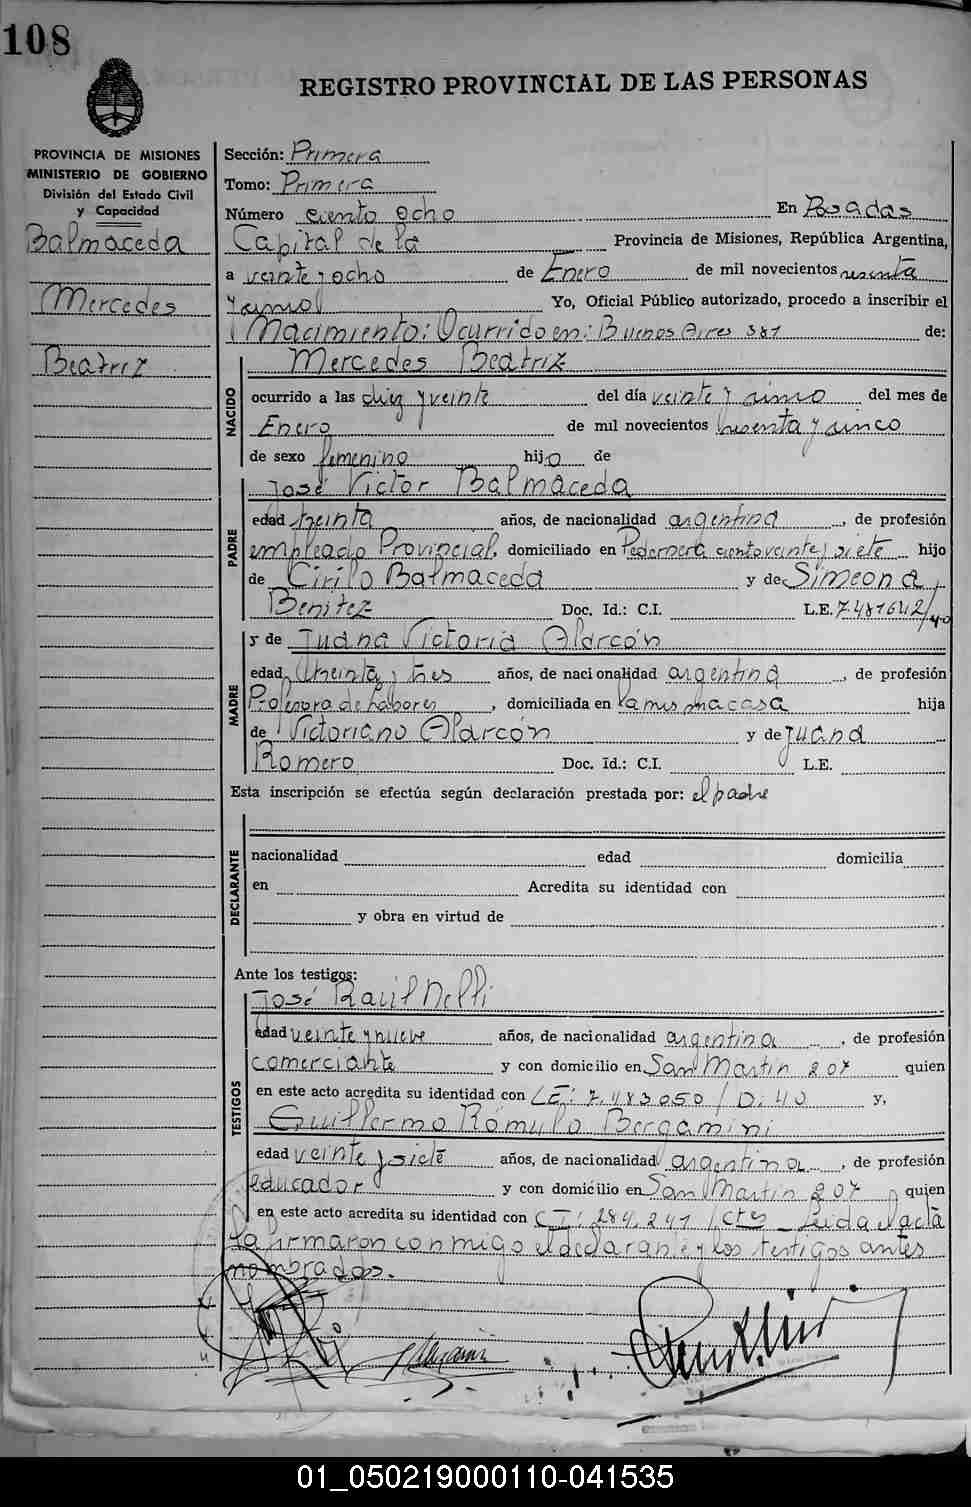 108
REGISTRO PROVINCIAL DE LAS PERSONAS
PROVINCIA DE MISIONES
MINISTERIO DE GOBIERNO
División del Estado Civil
y Capacidad
Balmaceda
Mercedes
Beatriz
Sección: Primera
Tomo: Primera
Número ciento ocho En Posadas
Capital de la Provincia de Misiones, República Argentina,
a veinte y ocho de Enero de mil novecientos sesenta
y cinco Yo, Oficial Público autorizado, procedo a inscribir el
Nacimiento: Ocurrido en: Buenos Aires 381 de:
NACIDO
Mercedes Beatriz
ocurrido a las diez y veinte del día veinte y cinco del mes de
Enero de mil novecientos sesenta y cinco
de sexo femenino hijo de
PADRE
José Victor Balmaceda
edad treinta años, de nacionalidad argentina, de profesión
empleado Provincial, domiciliado en Pedernera ciento veinte y siete hijo
de Cirilo Balmaceda y de Simeona
Benitez Doc. Id.: C.I. L.E. 7.481642/40
MADRE
y de Juana Victoria Alarcón
edad treinta y tres años, de nacionalidad argentina, de profesión
Profesora de Labores, domiciliada en la misma casa hija
de Victoriano Alarcón y de Juana
Romero Doc. Id.: C.I. L.E.
Esta inscripción se efectúa según declaración prestada por: el padre
DECLARANTE
nacionalidad edad domicilia
en Acredita su identidad con
y obra en virtud de
Ante los testigos:
TESTIGOS
José Raúl Nelli
edad veinte y nueve años, de nacionalidad argentina, de profesión
comerciante y con domicilio en San Martin 207 quien
en este acto acredita su identidad con LE: 7.483050/D.40 y,
Guillermo Rómulo Bergamini
edad veinte y siete años, de nacionalidad argentina, de profesión
educador y con domicilio en San Martin 207 quien
en este acto acredita su identidad con CI: 284.241/Ctes Leida el acta
la firmaron conmigo el declarante y los testigos antes
nombrados.
01_050219000110-041535